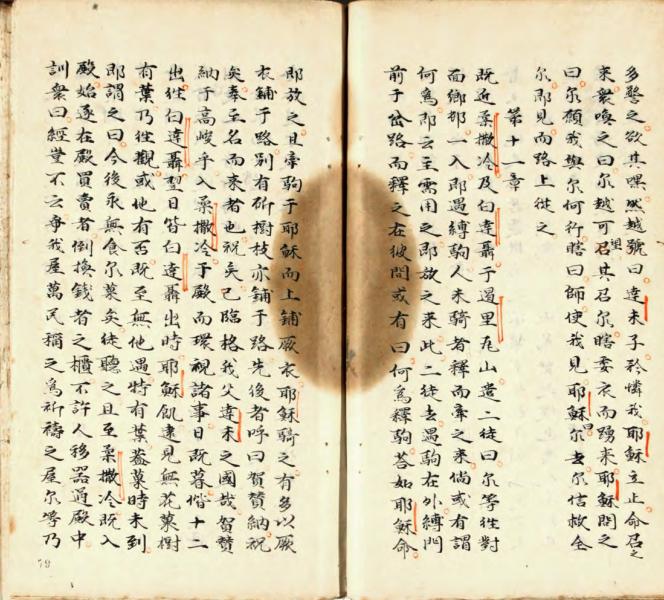 多譬之欲其嘿然越號曰達未子矜憐我耶穌立止命召之
來衆喚之曰尔越可起其召尔瞎委衣而踴來耶穌問之
曰尔願我與尔何行瞎曰師使我見耶穌曰尔去尔信救全
尔即見而路上從之
第十一章
既近柔撒冷及白達聶于遏里瓦山遣二徒曰尔等徃對
面鄉邨一入即遇縛駒人未騎者釋而牽之來倘或有謂
何爲即云主需用之即放之来此二徒去遇駒在外縛門
前于岔路而釋之在彼間或有曰何爲釋駒荅如耶穌命
即放之且牽駒于耶穌而上鋪厥衣耶穌騎之有多以厥
衣鋪于路别有斫樹枝亦鋪于路先後者呼曰賀賛納祝
矣奉主名而來者也祝矣已臨格我父達未之國哉賀賛
納于高峻乎入柔撒冷于殿而環視諸事日既暮偕十二
出徃白達聶翌日皆白達聶出時耶穌飢遠見無花菓樹
有葉乃徃觀或地有否既至無他遇特有葉葢菓時未到
即謂之曰今後永無食尔菓矣徒聽之且至柔撒冷既入
殿始逐在殿買賣者倒換錢者之櫃不許人移噐過殿中
訓衆曰經豈不云乎我屋萬民稱之爲祈禱之屋尔等乃
79